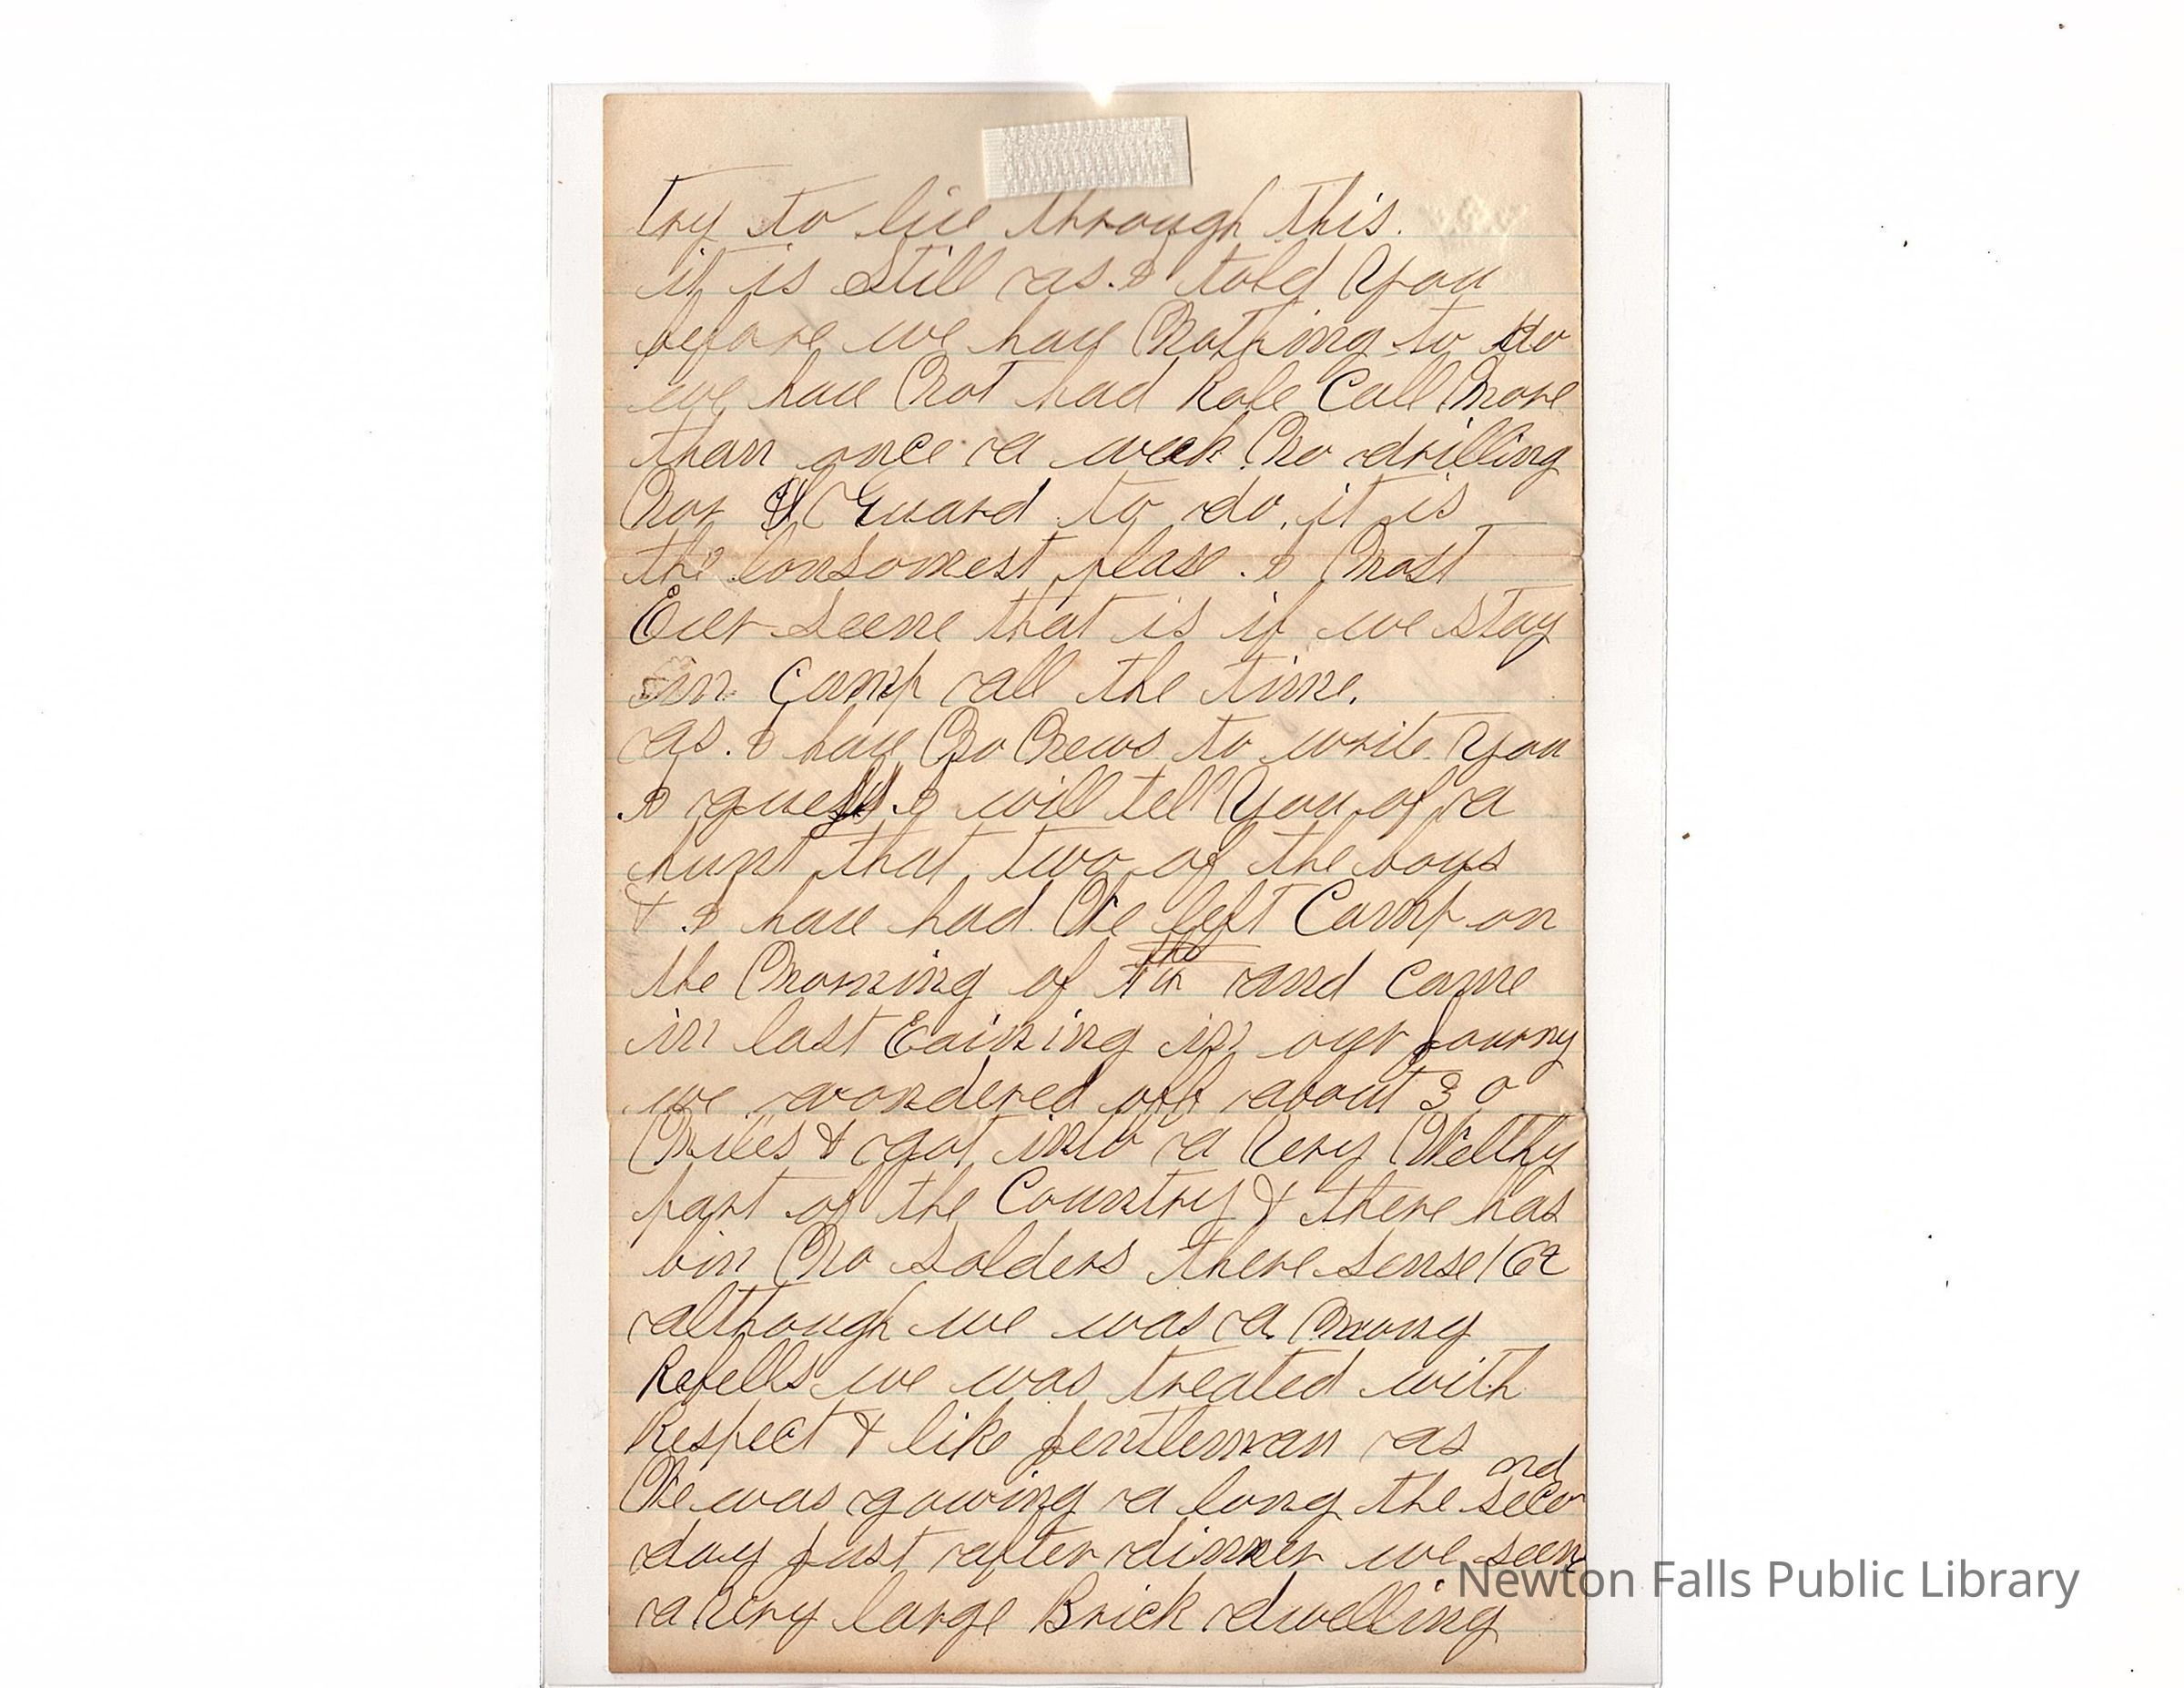 Try to live through this.
it is Still as. I told You
before we have Nothing to do
we have Not had Role Call More
than once a week No drilling
Nor Guard to do. it is
the lonsomest plase. I Most
Ever Seene that is if we Stay
in Camp all the time.
as. I have No News to write You
I guess I will tell You of a
hunt that two of the boys
& I have had. We left Camp on
the Morning of the and Came
in last Evining in over Journy
we wondered off about 30
Miles & got into a Very Welthy
part of the Country & there has
bin No Solders there Sense /62
although we was a Mong
Rebells we was treated with
Respect & like Jentleman as
We was gowing a long the Second
day Just after dinner we seen
a Very large Brick dwelling
Newton Falls Public Library